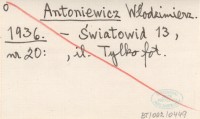 o Antoniewicz Włodzimierz.
1936. - Światowid 13,
nr 20: , il. Tylko fot.
BT/002/0449